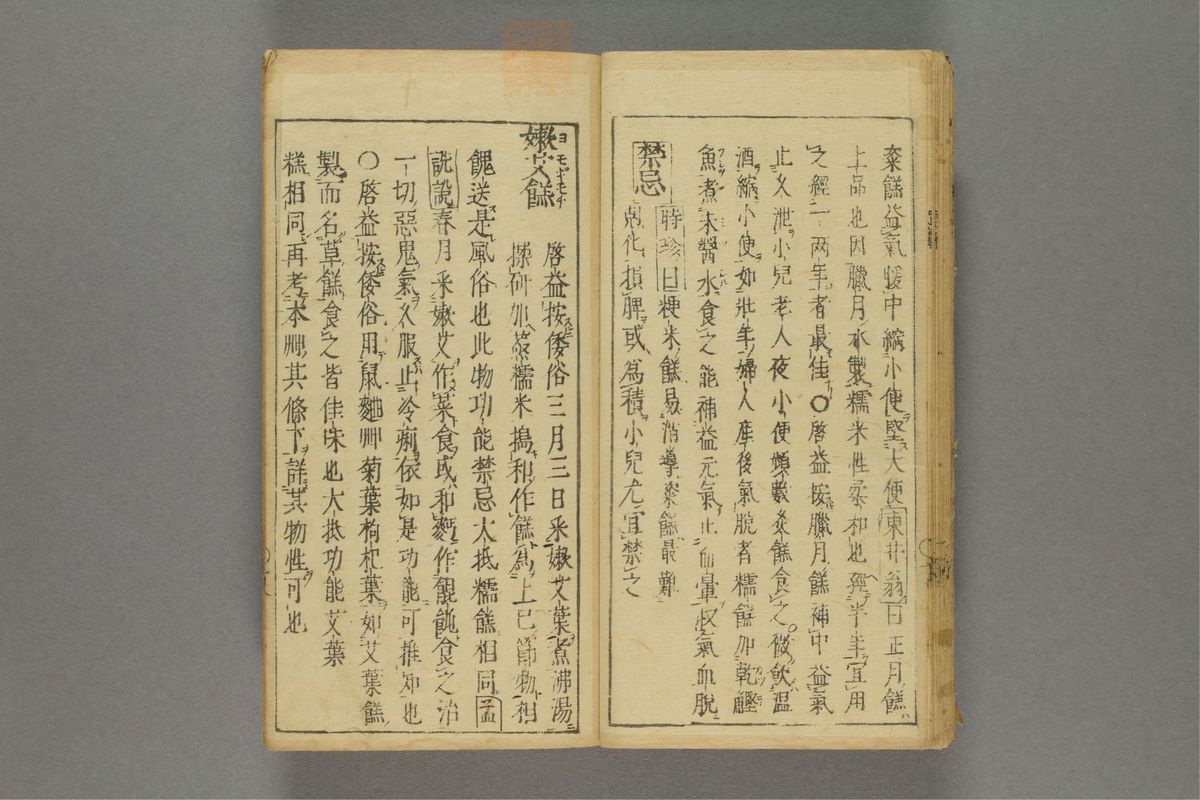 粢餻益氣暖中縮小便堅大便東井翁曰正月餻
上品也因臘月水製糯米性柔和也經半年宜用
之經一兩年者最佳〇啓益按臘月餻補中益氣
止久泄小兒老人夜小便頻數炙餻食之微飲溫
酒縮小便如壯年婦人産後氣脫者糯餻加乾鰹
魚煮未醬水食之能補益元氣止血暈收氣血脫
禁忌
時珍曰粳米餻易消導粢餻最難
尅化損脾或為積小兒尤宜禁之
嫩艾餻
ヨモギモチ
啓益按倭俗三月三日采嫩艾葉煮沸湯
搽研加蒸糯米搗和作餻為上巳節物相
餽送是風俗也此物功能禁忌大抵糯餻相同孟
詵說春月采嫩艾作菜食或和麪作餛飩食之治
一切惡鬼氣久服止冷痢依如是功能可推知也
〇啓益按倭俗用鼠麯艸菊葉枸杞葉如艾葉餻
製而名草餻食之皆佳味也大抵功能艾葉
糕相同再考本艸其條下詳其物性可也